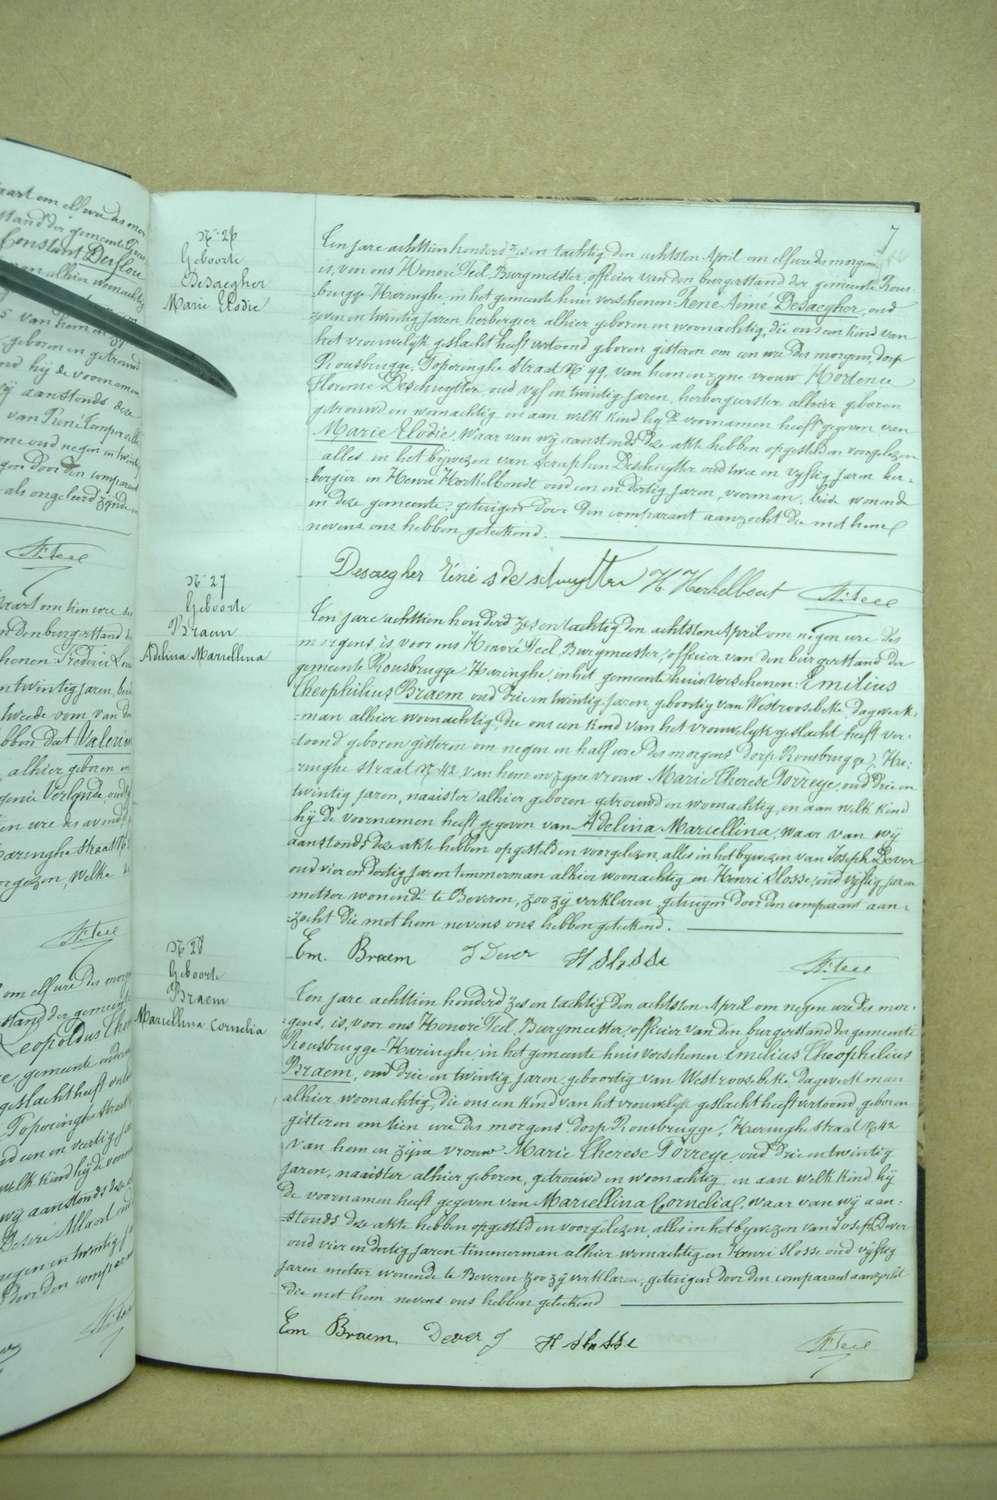 7
N° 26
Geboorte
Desaegher
Marie Elodie
Ten jare achttien honderd zes en tachtig den achtsten April om elf ure des morgens
is, voor ons Honoré Teel, Burgmeester, officier van den burgerstand der gemeente Rous-
brugge Haringhe, in het gemeente huis verschenen René Aimé Desaegher, oud
zeven en twintig jaren, herbergier alhier geboren en woonachtig, die ons een kind van
het vrouwelijk geslacht heeft vertoond geboren gisteren om een ure des morgens, dorp
Rousbrugge, Poperinghe straat N° 99, van hem en zyne vrouw Hortence
Florence Deschuytter, oud vyf en twintig jaren, herbergierster alhier geboren
getrouwd en woonachtig, en aan welk kind hy de voornamen heeft gegeven van
Marie Elodie, waar van wy aanstonds deze akte hebben opgesteld en voorgelezen
alles in het bywezen van Seraphin Deschuytter oud twee en vyftig jaren her-
bergier en Henri Herkelbout oud een en dertig jaren, voerman, beide wonende
in deze gemeente, getuigen door den comparant aanzocht die met hem
nevens ons hebben geteekend.
Desaegher Réné s de schuytter H. Herkelbout H. Teel
N° 27
Geboorte
Braem
Adelina Marcellina
Ten jare achttien honderd zes en tachtig den achtsten April om negen ure des
morgens is, voor ons Honoré Teel, Burgmeester, officier van den burgerstand der
gemeente Rousbrugge Haringhe, in het gemeente huis verschenen Emilius
Theophilius Braem, oud drie en twintig jaren, geboortig van Westroosbeke, dagwerk-
man alhier woonachtig, die ons een kind van het vrouwelyk geslacht heeft ver-
toond geboren gisteren om negen en half ure des morgens dorp Rousbrugge, Ha-
ringhe straat N° 42, van hem en zyne vrouw Marie Therese Torreye, oud drie en
twintig jaren, naaister alhier geboren getrouwd en woonachtig, en aan welk kind
hy de voornamen heeft gegeven van Adelina Marcellina, waar van wy
aanstonds deze akte hebben opgesteld en voorgelezen, alles in het bywezen van Joseph Dever
oud vier en dertig jaren timmerman alhier woonachtig en Henri Slosse, oud vyftig jaren
metser wonende te Beveren, zoo zy verklaren, getuigen door den comparant aan-
zocht die met hem nevens ons hebben geteekend.
Em. Braem J Dever H Slosse H. Teel
N° 28
Geboorte
Braem
Marcellina Cornelia
Ten jare achttien honderd zes en tachtig den achtsten April om negen ure des mor-
gens, is, voor ons Honoré Teel, Burgmeester, officier van den burgerstand der gemeente
Rousbrugge Haringhe, in het gemeente huis verschenen Emilius Theophilius
Braem, oud drie en twintig jaren, geboortig van Westroosbeke dagwerkman
alhier woonachtig, die ons een kind van het vrouwelijk geslacht heeft vertoond, geboren
gisteren om tien ure des morgens dorp Rousbrugge, Haringhe straat N° 42
van hem en zijne vrouw Marie Therese Torreye, oud drie en twintig
jaren, naaister alhier geboren, getrouwd en woonachtig, en aan welk kind hij
de voornamen heeft gegeven van Marcellina Cornelia, waar van wij aan-
stonds deze akte hebben opgesteld en voorgelezen, alles in het bywezen van Joseph Dever
oud vier en dertig jaren timmerman alhier woonachtig en Henri Slosse oud vyftig
jaren metser wonende te Beveren zoo zij verklaren, getuigen door den comparant aanzocht
die met hem nevens ons hebben geteekend
Em Braem Dever J H Slosse H. Teel